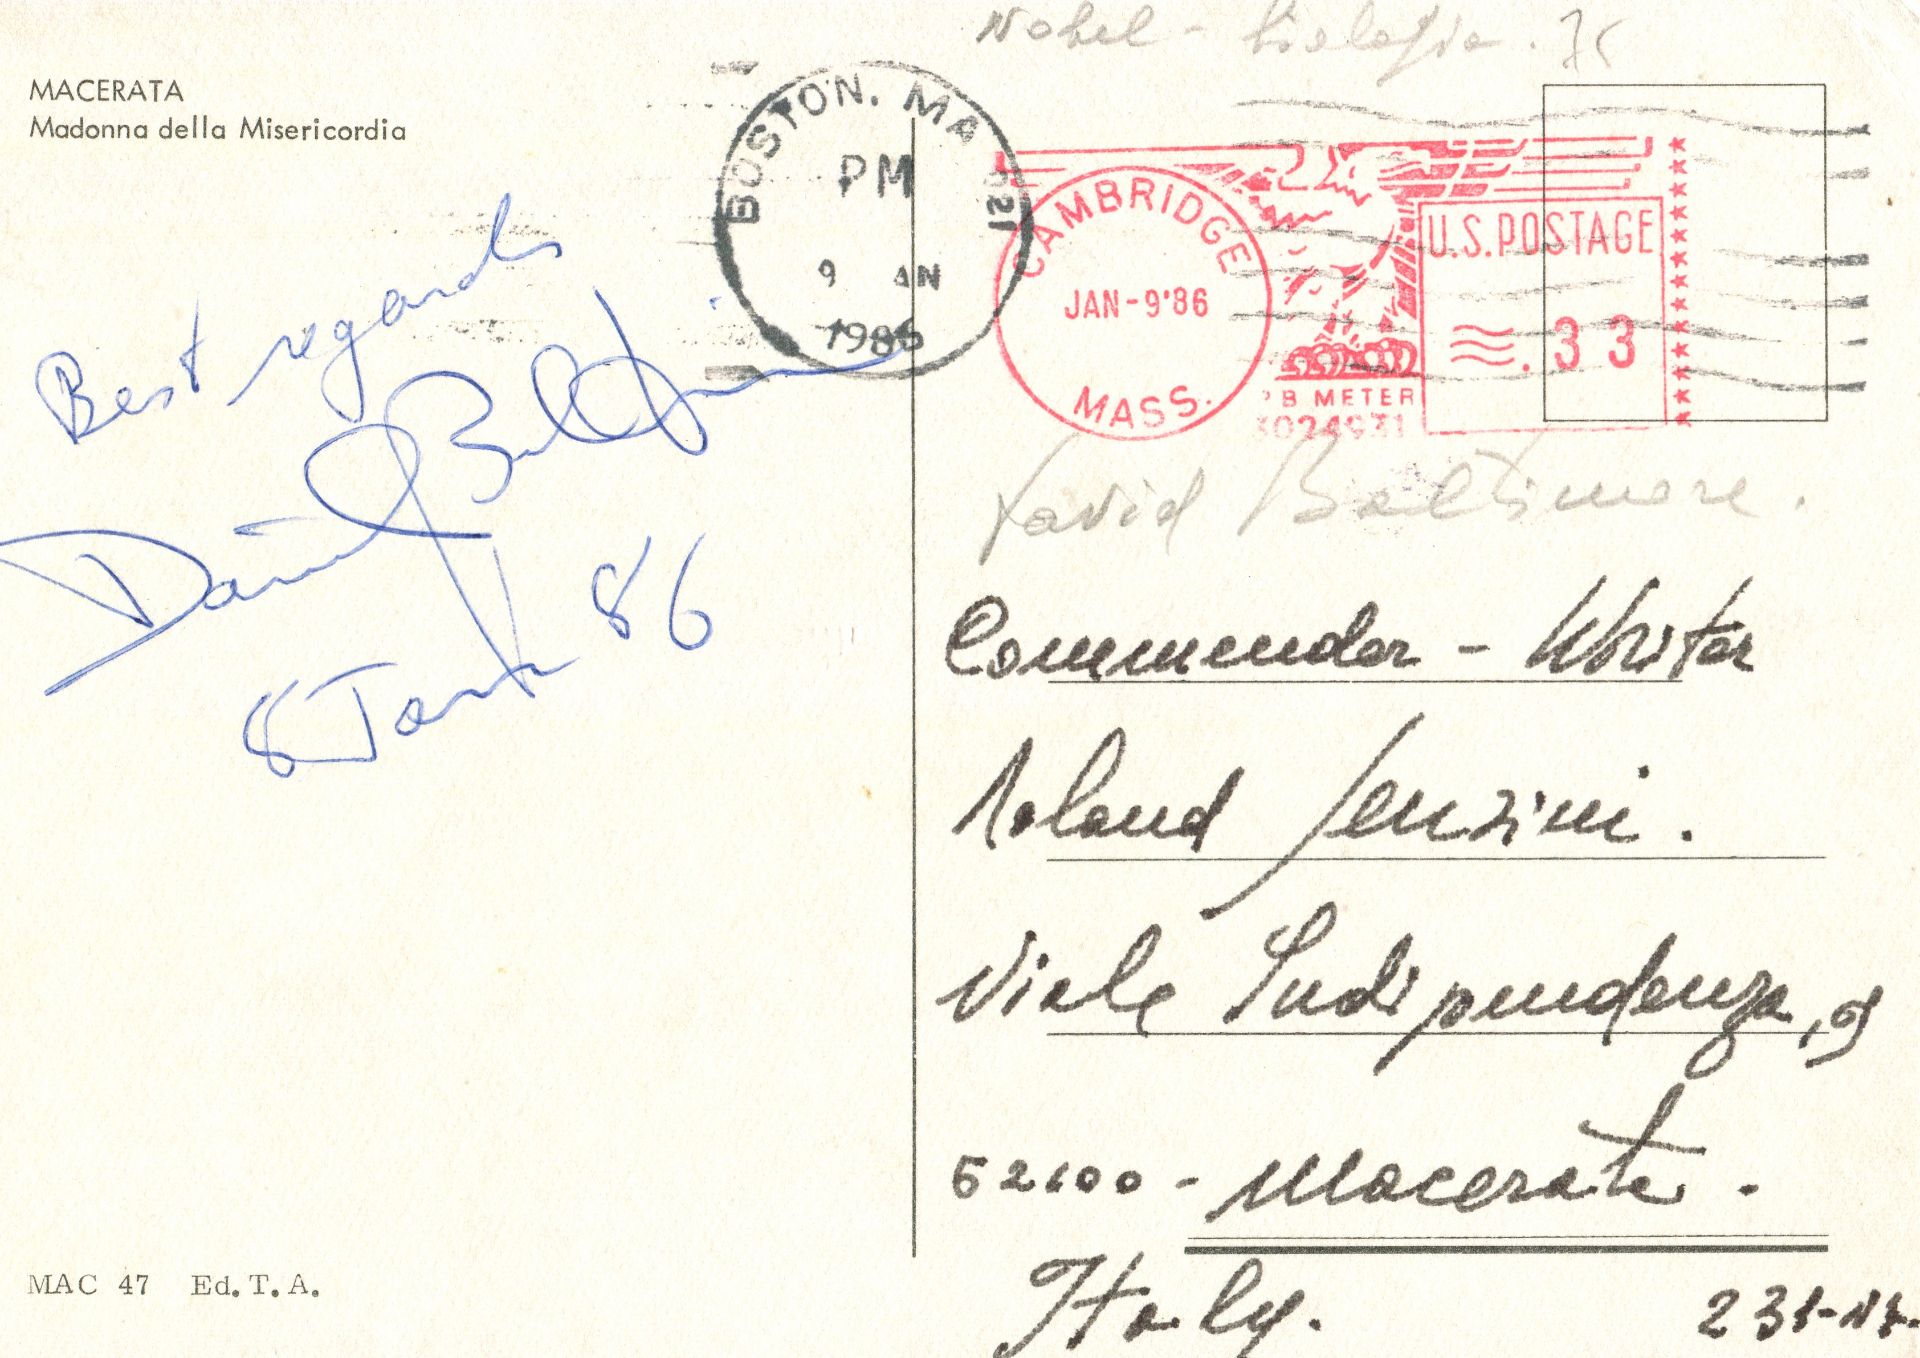 Nobel - biologia. 75
MACERATA
Madonna della Misericordia
BOSTON, MA 021
PM
9 JAN
1986
CAMBRIDGE
JAN-9'86
MASS.
U.S. POSTAGE
.33
PB METER
3024931
Best regards
David Baltimore
8 Jan 86
David Baltimore.
Commendor - Writer
Roland Jenzini.
Viale Indipendenza,
62100 - Macerata.
Italy.
MAC 47 Ed. T. A.